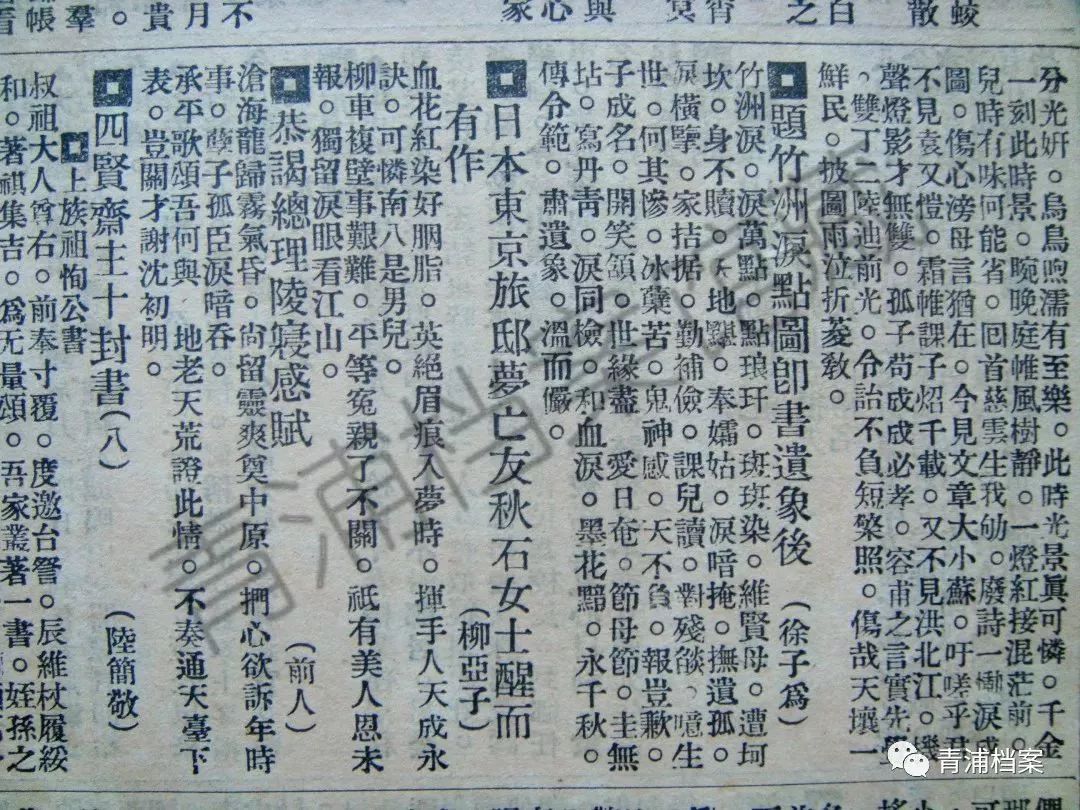 蛟
散
白
之
宵
冥
與
心
家
不
月
貴
羣
帳
分光妍。烏鳥呴濡有至樂。此時光景眞可憐。千金
一刻此時景。晼晚庭帷風樹靜。一燈紅接混茫前。
兒時有味何能省。回首慈雲生我劬。廢詩一慟淚成
圖。傷心滂母言猶在。今見文章大小蘇。吁嗟乎君
不見袁又愷。霜帷課子炤千載。又不見洪北江。機
聲燈影才無雙。孤子苟成必孝。容甫之言實先覺
。雙丁二陸迪前光。令詒不負短檠照。傷哉天壤一
鮮民。披圖雨泣折菱敎。
題竹洲淚點圖卽書遺象後
(徐子爲)
竹洲淚。淚萬點。點琅玕。斑斑染。維賢母。遭坷
坎。身不贖。天地黲。奉孀姑。淚喑掩。撫遺孤。
淚橫擥。家拮据。勤補儉。課兒讀。對殘燄。噫生
世。何其慘。冰蘗苦。鬼神感。天不負。報豈歉。
子成名。開笑頷。世緣盡。愛日奄。節母節。圭無
坫。寫丹靑。淚同檢。和血淚。墨花黯。永千秋。
傳令範。肅遺象。溫而儼。
日本東京旅邸夢亡友秋石女士醒而
有作
(柳亞子)
血花紅染好胭脂。英絕眉痕入夢時。揮手人天成永
訣。可憐南八是男兒。
柳車複壁事艱難。平等寃親了不關。祇有美人恩未
報。獨留淚眼看江山。
恭謁總理陵寢感賦
(前人)
滄海龍歸霧氣昏。尙留靈爽奠中原。捫心欲訴年時
事。孽子孤臣淚暗呑。
承平歌頌吾何與 地老天荒證此情。不奏通天臺下
表。豈關才謝沈初明。
四賢齋主十封書(八)
(陸簡敬)
上族祖恂公書
叔祖大人尊右。前奉寸覆。度邀台詧。辰維杖履綏
和。著祺集吉。爲无量頌。吾家叢著一書。姪孫之
青浦档案
青浦档案